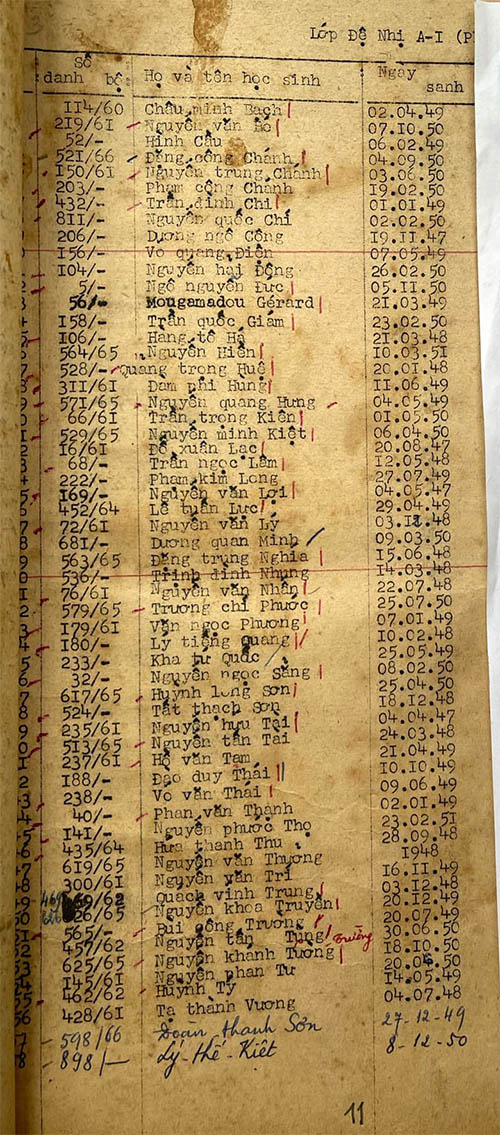 Lớp Đệ Nhị A-I (P
Số danh bộ Họ và tên học sinh Ngày sanh
114/60 Châu minh Bạch 02.04.49
219/61 Nguyễn văn Bố 07.10.50
52/- Hinh Cầu 06.02.49
521/66 Đặng công Chánh 04.09.50
150/61 Nguyễn trung Chánh 03.06.50
203/- Phạm công Chánh 19.02.50
432/- Trần đình Chi 01.01.49
811/- Nguyễn quốc Chí 02.02.50
206/- Dương ngô Công 19.11.47
156/- Vo quang Điện 07.05.49
104/- Nguyễn hai Động 26.02.50
5/- Ngô nguyên Đức 05.11.50
56/- Mougamadou Gérard 21.03.49
158/- Trần quốc Giám 23.02.50
106/- Hàng tô Hà 21.03.48
564/65 Nguyễn Hiền 10.03.51
528/- Quang trong Huê 20.01.48
311/61 Đam phi Hùng 11.06.49
571/65 Nguyễn quang Hưng 04.05.49
66/61 Trần trong Kiên 01.05.50
529/65 Nguyễn minh Kiệt 06.04.50
16/61 Đỗ xuân Lac 20.08.47
68/- Trần ngọc Lâm 12.05.48
222/- Phạm kim Long 27.07.49
169/- Nguyễn văn Lợi 04.05.47
452/64 Lê tuấn Lực 29.04.49
72/61 Nguyễn văn Lý 03.12.48
681/- Dương quan Minh 09.03.50
563/65 Đặng trung Nghia 15.06.48
536/- Trinh đinh Nhung 14.03.48
76/61 Nguyễn văn Nhân 22.07.48
579/65 Trương chi Phước 25.07.50
179/61 Văn ngọc Phương 07.01.49
180/- Lý tiếng quang 10.02.48
233/- Kha tư Quốc 25.05.49
32/- Nguyễn ngọc Sáng 08.02.50
617/65 Huỳnh long Sơn 25.04.50
524/- Tất thạch Sơn 18.12.48
235/61 Nguyễn hưu Tài 04.04.47
513/65 Nguyễn tấn Tài 24.03.48
237/61 Hồ văn Tam 21.04.49
188/- Đao duy Thái 10.10.49
238/- Vo văn Thái 09.06.49
40/- Phan văn Thành 02.01.49
141/- Nguyễn phước Tho 23.02.51
435/64 Hưa thanh Thu 28.09.48
619/65 Nguyễn văn Thương 1948
300/61 Nguyễn văn Trí 16.11.49
69/62 Quách vinh Trung 03.12.48
626/65 Nguyễn khoa Truyền 20.12.49
565/- Bui công Trương 20.07.49
457/62 Nguyễn tấn Tùng Trường 30.06.50
625/65 Nguyễn khanh Tường 18.10.50
145/61 Nguyễn phan Tư 20.04.50
462/62 Huỳnh Tỷ 14.05.49
428/61 Tạ thành Vương 04.07.48
598/66 Đoàn thanh Sơn 27-12-49
898/- Lý-thế-Kiêt 8-12-50
11